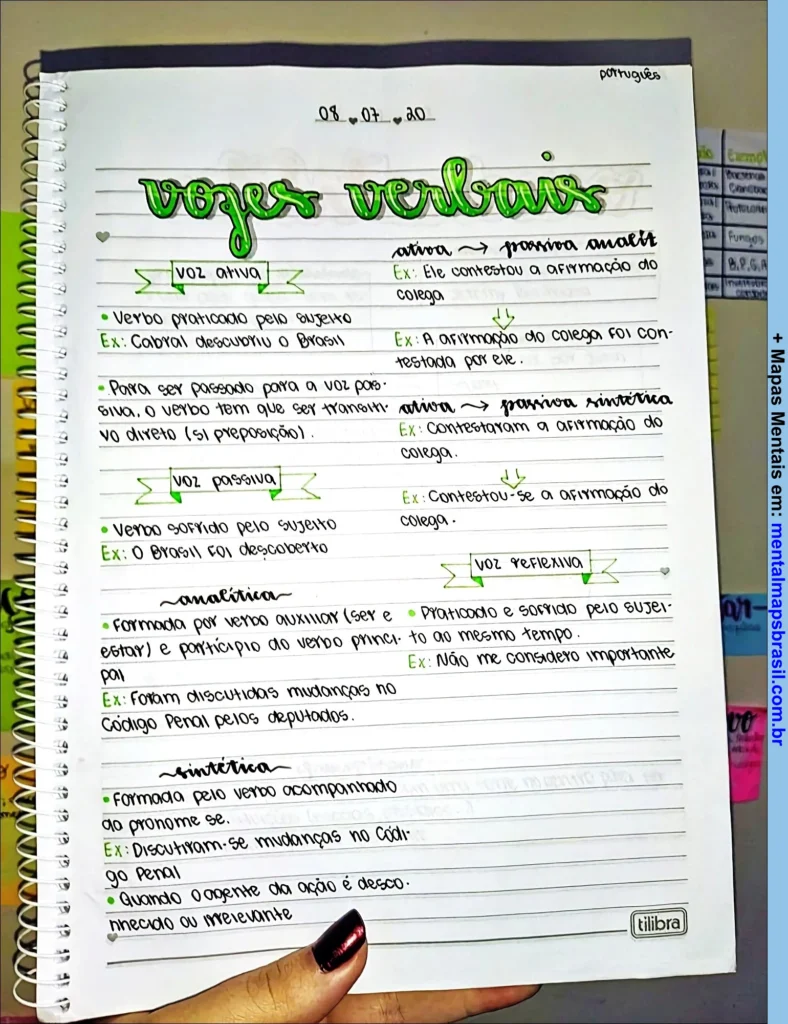 português
08 07 20
vozes verbais
voz ativa
• Verbo praticado pelo sujeito
Ex: Cabral descubriu o Brasil
• Para ser passado para a voz pas-
siva, o verbo tem que ser transiti-
vo direto (s/ preposição).
voz passiva
• Verbo sofrido pelo sujeito
Ex: O Brasil foi descoberto
analítica
• Formada por verbo auxiliar (ser e
estar) e particípio do verbo princi-
pal
Ex: Foram discutidas mudanças no
Código Penal pelos deputados.
sintética
• Formada pelo verbo acompanhado
do pronome se.
Ex: Discutiram-se mudanças no Códi-
go Penal
• Quando o agente da ação é desco-
nhecido ou irrelevante
ativa → passiva analít
Ex: Ele contestou a afirmação do
colega
Ex: A afirmação do colega foi con-
testada por ele.
ativa → passiva sintética
Ex: Contestaram a afirmação do
colega.
Ex: Contestou-se a afirmação do
colega.
voz reflexiva
• Praticado e sofrido pelo sujei-
to ao mesmo tempo.
Ex: Não me considero importante
tilibra
Exempl
Fungos
B, P, F, A
ar-
vo
+ Mapas Mentais em: mentalmapsbrasil.com.br